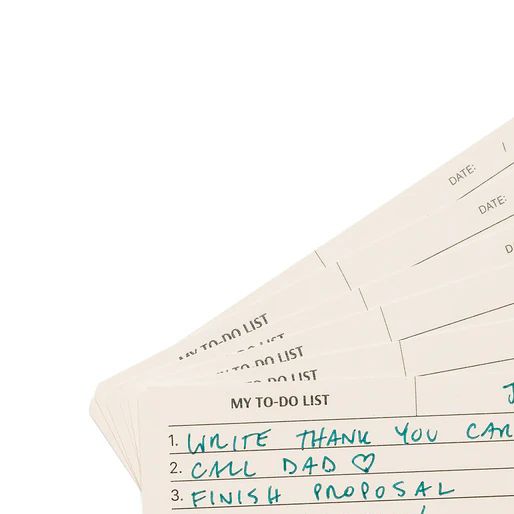 DATE: /
DATE:
D
MY TO-DO LIST
TO-DO LIST
TO-DO LIST
MY TO-DO LIST J
1. WRITE THANK YOU CAR
2. CALL DAD ♡
3. FINISH PROPOSAL